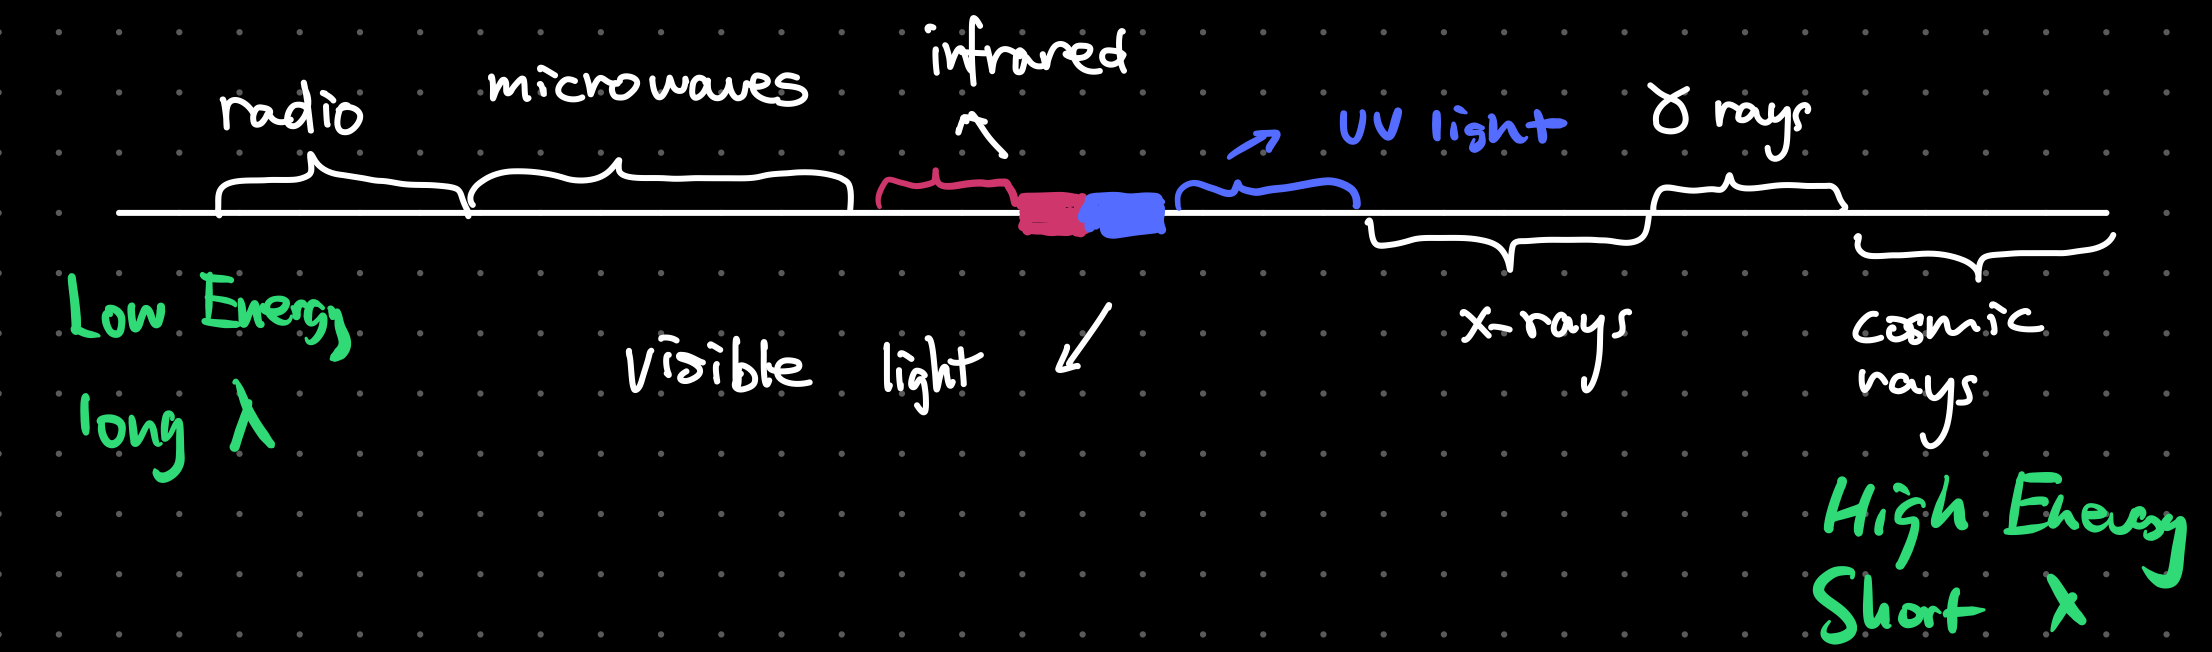 radio
microwaves
infrared
UV light
γ rays
Low Energy
long λ
visible light
x-rays
cosmic
rays
High Energy
Short λ